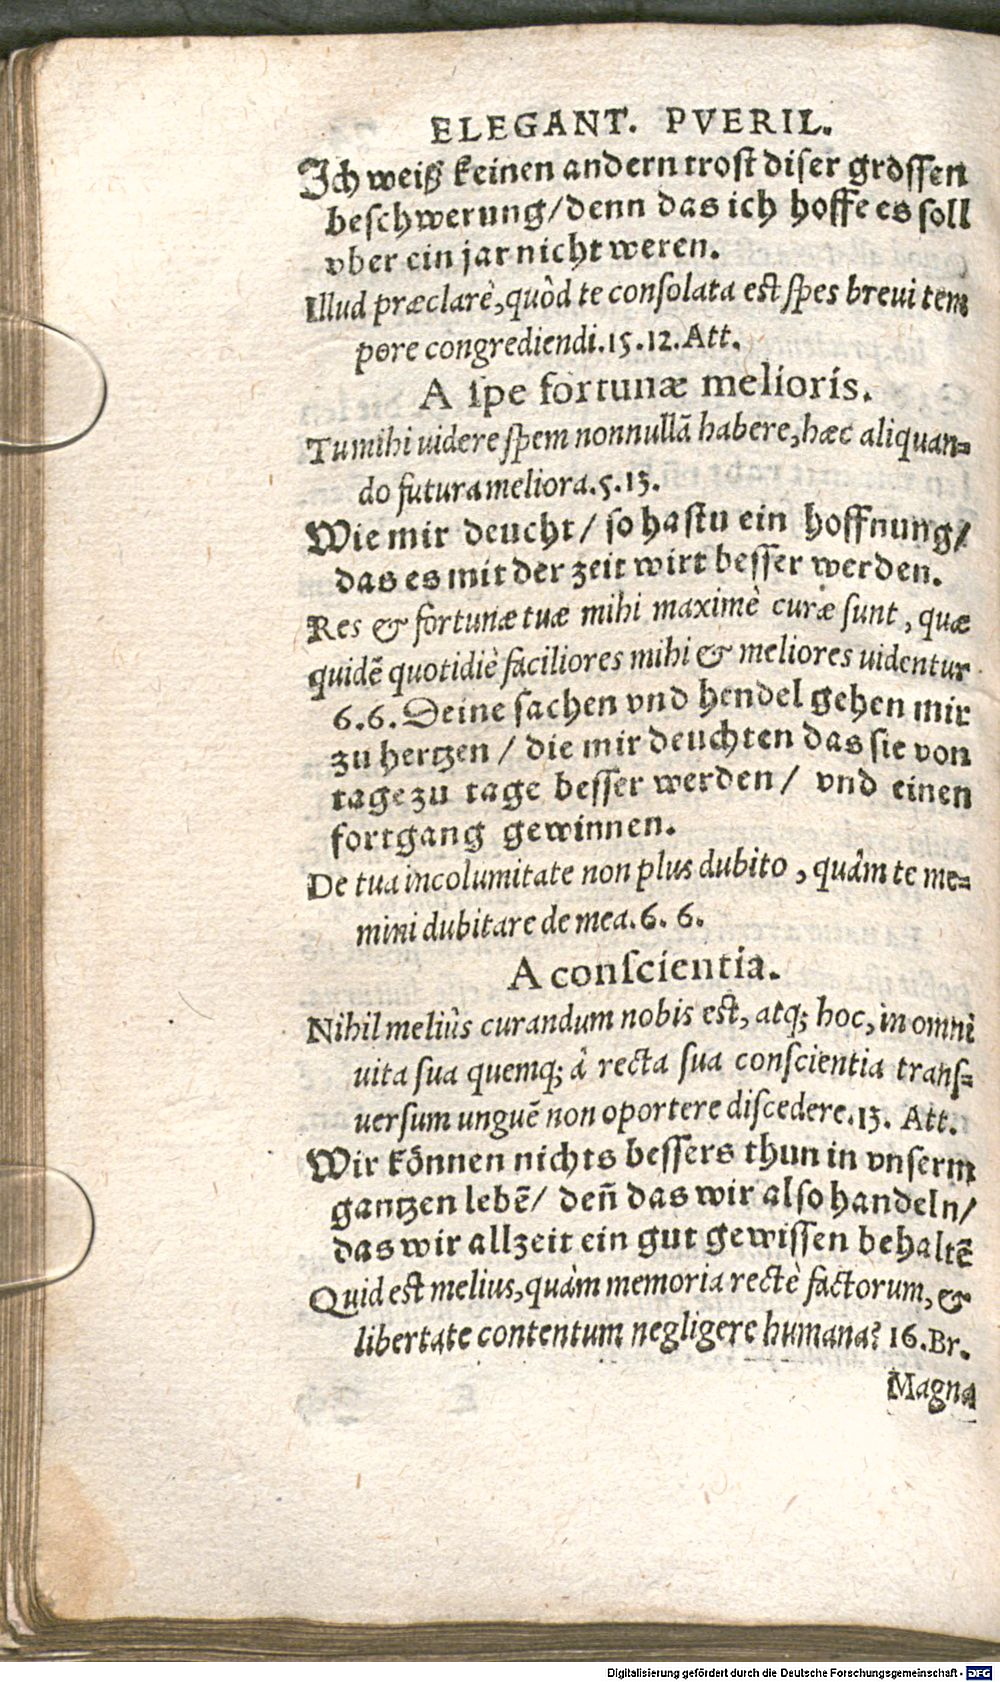 ELEGANT. PVERIL.
Ich weiß keinen andern trost diser grossen
beschwerung/denn das ich hoffe es soll
vber ein jar nicht weren.
Illud præclarè, quòd te consolata est spes breui tem
pore congrediendi. 15. 12. Att.
A spe fortunæ melioris.
Tu mihi uidere spem nonnullā habere, hæc aliquan=
do futura meliora. 5. 13.
Wie mir deucht/ so hastu ein hoffnung/
das es mit der zeit wirt besser werden.
Res & fortunæ tuæ mihi maximè curæ sunt, quæ
quidē quotidiè faciliores mihi & meliores uidentur
6. 6. Deine sachen vnd hendel gehen mir
zu hertzen / die mir deuchten das sie von
tage zu tage besser werden/ vnd einen
fortgang gewinnen.
De tua incolumitate non plus dubito, quâm te me=
mini dubitare de mea. 6. 6.
A conscientia.
Nihil meliùs curandum nobis est, atq; hoc, in omni
uita sua quemq; â recta sua conscientia trans=
uersum unguē non oportere discedere. 13. Att.
Wir können nichts bessers thun in vnserm
gantzen lebē/ deñ das wir also handeln/
das wir allzeit ein gut gewissen behaltē
Quid est melius, quàm memoria rectè factorum, &
libertate contentum negligere humana? 16. Br.
Magna
Digitalisierung gefördert durch die Deutsche Forschungsgemeinschaft - DFG